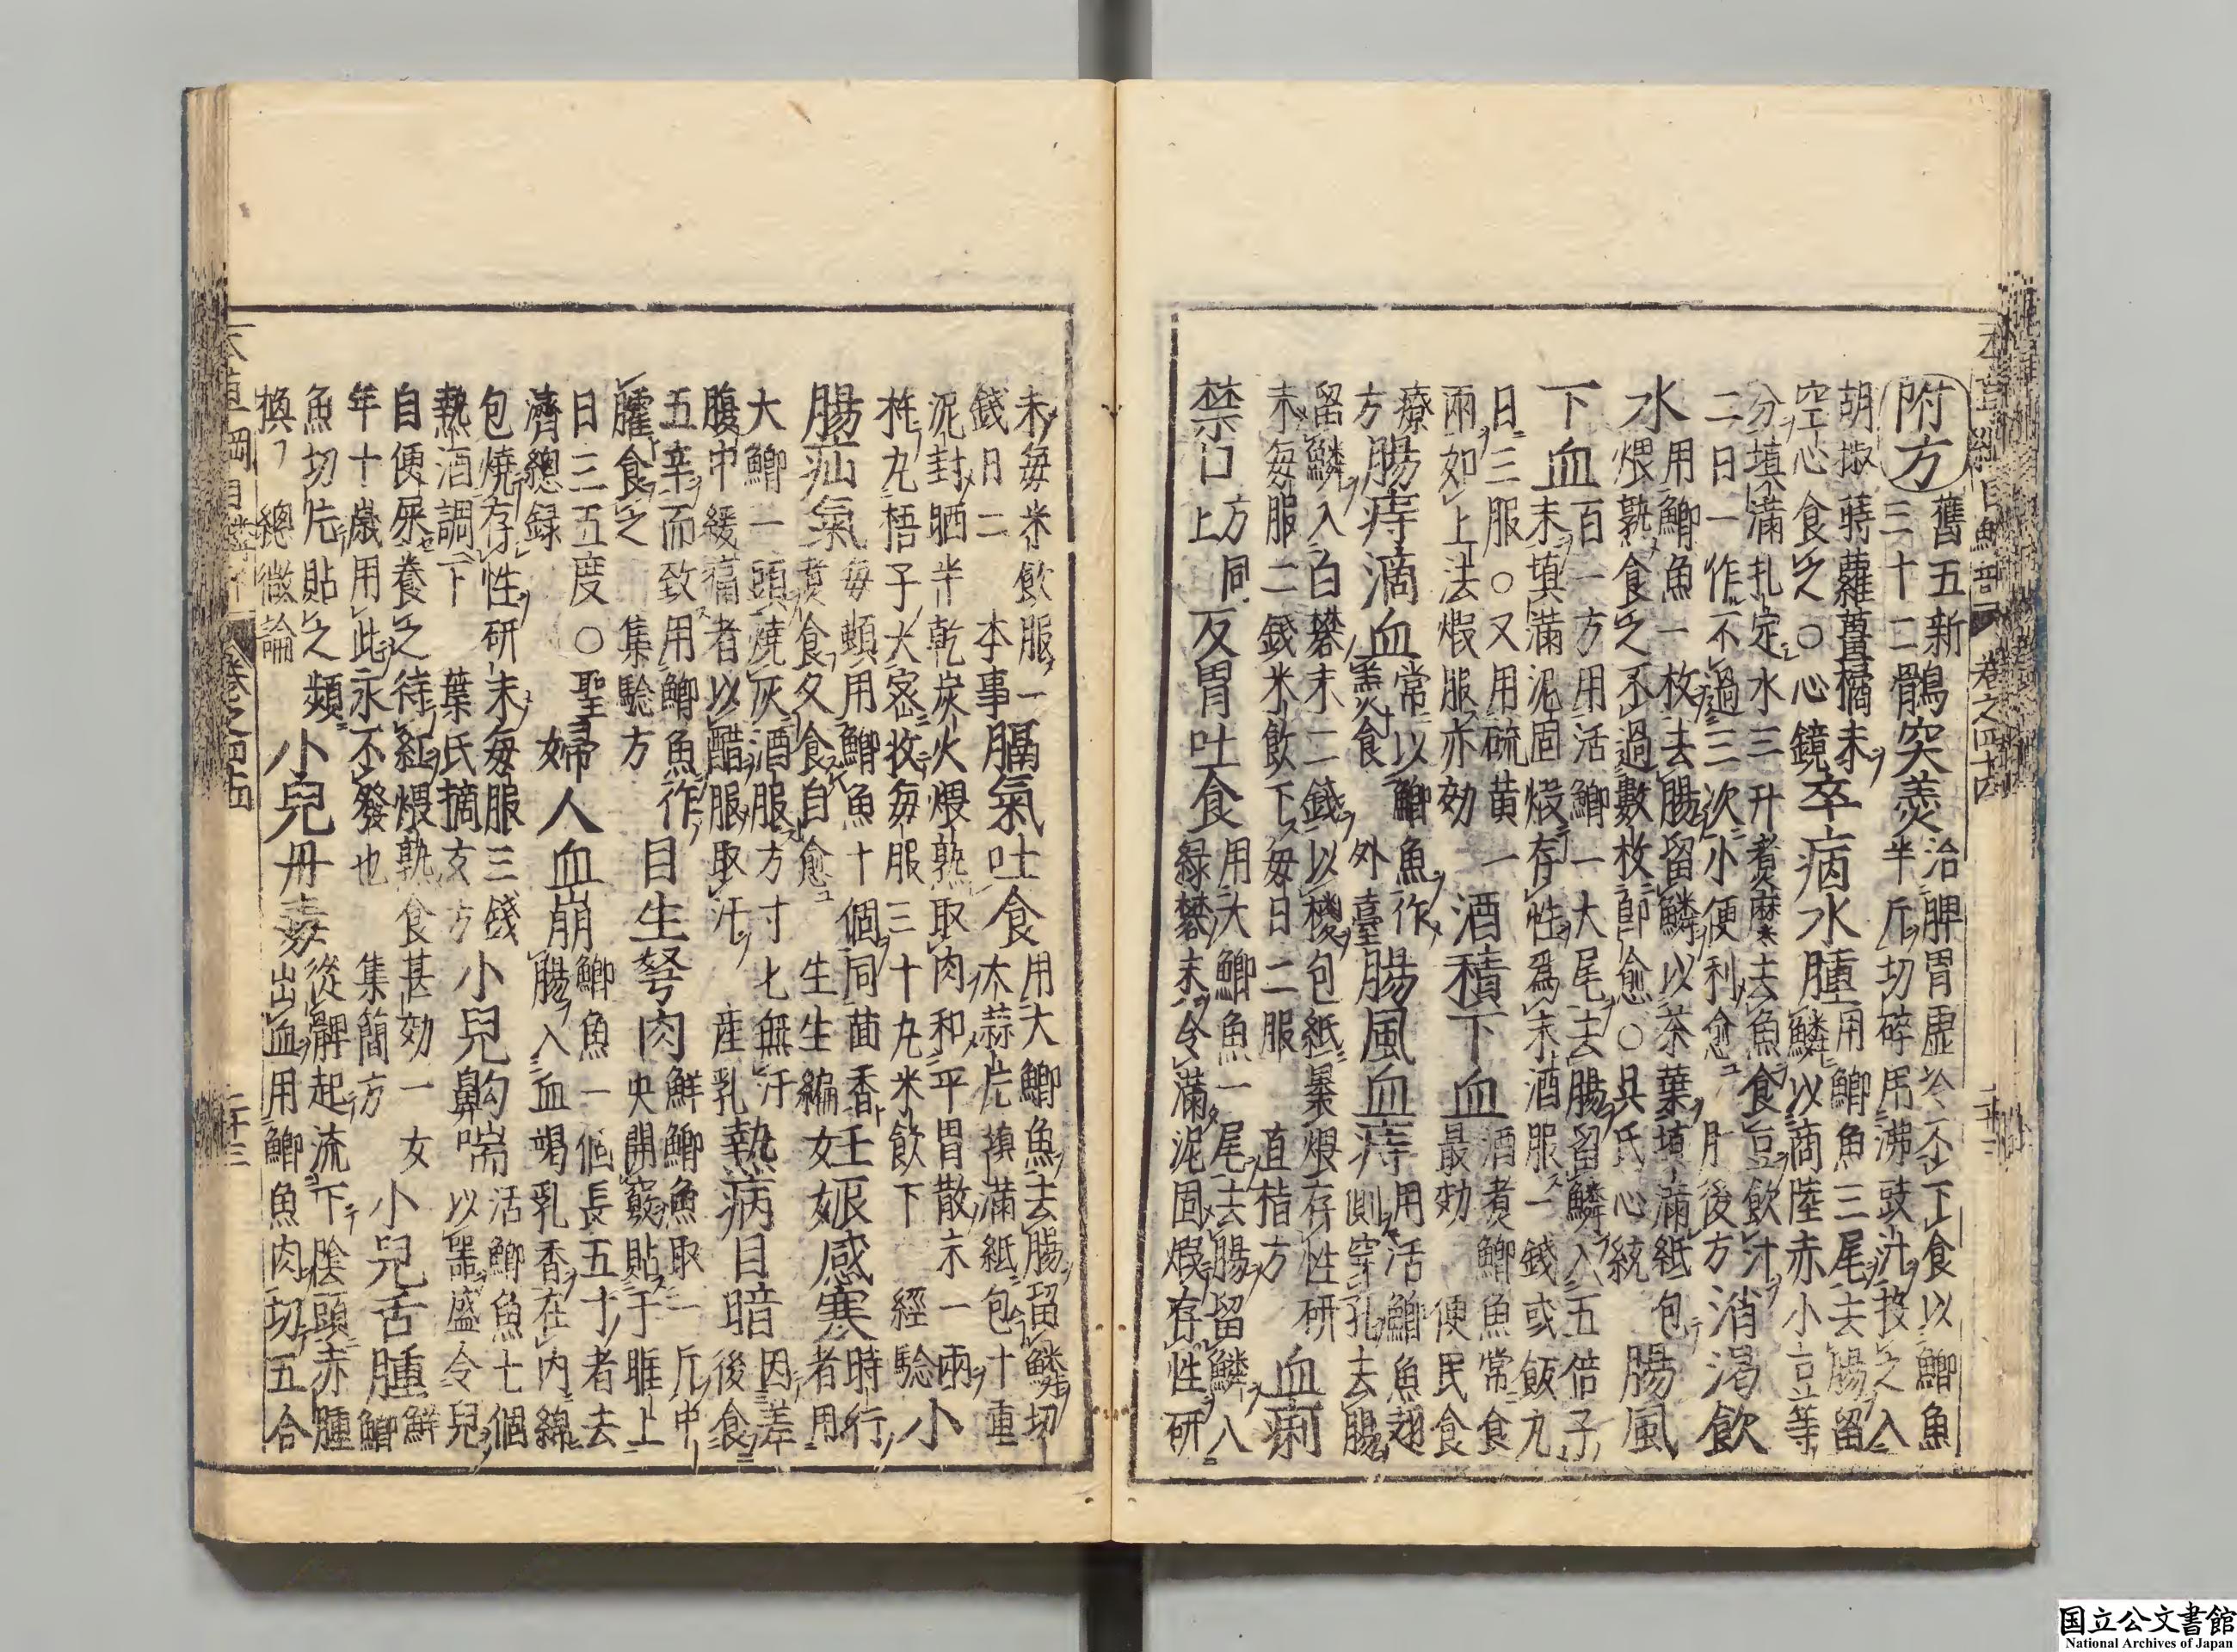 本草綱目魚部 卷之四十四
附方 舊五新三十二 鶻突羹 治脾胃虛冷不下食以鯽魚半斤切碎用沸豉汁投之入
胡椒蒔蘿薑橘末空心食之○心鏡 卒病水腫 用鯽魚三尾去腸留鱗以商陸赤小豆等
分填滿扎定水三升煮糜去魚食豆飲汁二日一作不過三次小便利愈 肘後方 消渴飲
水 用鯽魚一枚去腸留鱗以茶葉填滿紙包煨熟食之不過數枚即愈○呉氏心統 腸風
下血 百一方用活鯽一大尾去腸留鱗入五倍子末填滿泥固煅存性爲末酒服一錢或飯丸
日三服○又用硫黄一兩如上法煅服亦効 酒積下血 酒煮鯽魚常食最効 便民食
療方 腸痔滴血 常以鯽魚作羹食 外臺 腸風血痔 用活鯽魚翅側穿孔去腸
留鱗入白礬末二錢以椶包紙裹煨存性研末每服二錢米飲下每日二服 直指方 血痢
禁口 方同上 反胃吐食 用大鯽魚一尾去腸留鱗入緑礬末令滿泥固煅存性研
末每米飲服一錢日二 本事 膈氣吐食 用大鯽魚去腸留鱗切大蒜片填滿紙包十重
泥封晒半乾炭火煨熟取肉和平胃散末一兩杵丸梧子大密收每服三十丸米飲下 經驗 小
腸疝氣 每頓用鯽魚十個同茴香煮食久食自愈 生生編 女妊娠感寒 時行者用
大鯽一頭燒灰酒服方寸匕無汗腹中緩痛者以醋服取汗 産乳 熱病目暗 因差後食
五辛而致用鯽魚作臛食之 集驗方 目生弩肉 鮮鯽魚取一片中央開竅貼于眶上
日三五度○聖濟總録 婦人血崩 鯽魚一個長五寸者去腸入血竭乳香在内綿
包燒存性研末每服三錢熱酒調下 葉氏摘玄方 小兒齁喘 活鯽魚七個以器盛令兒
自便尿養之待紅煨熟食甚効一女年十歳用此永不發也 集簡方 小兒舌腫 鮮鯽
魚切片貼之頻換 總微論 小兒丹毒 從髀起流下陰頭赤腫出血用鯽魚肉切五合
国立公文書館
National Archives of Japan